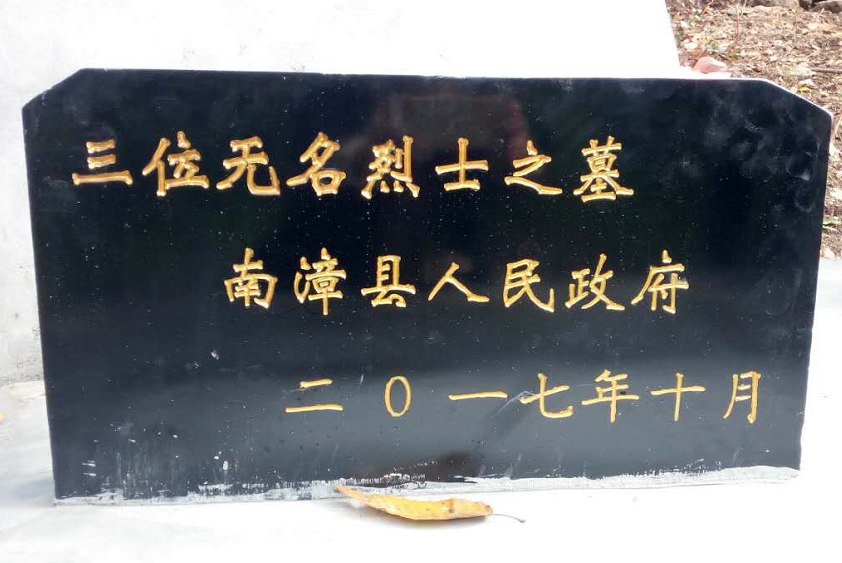 三位无名烈士之墓
南漳县人民政府
二0一七年十月